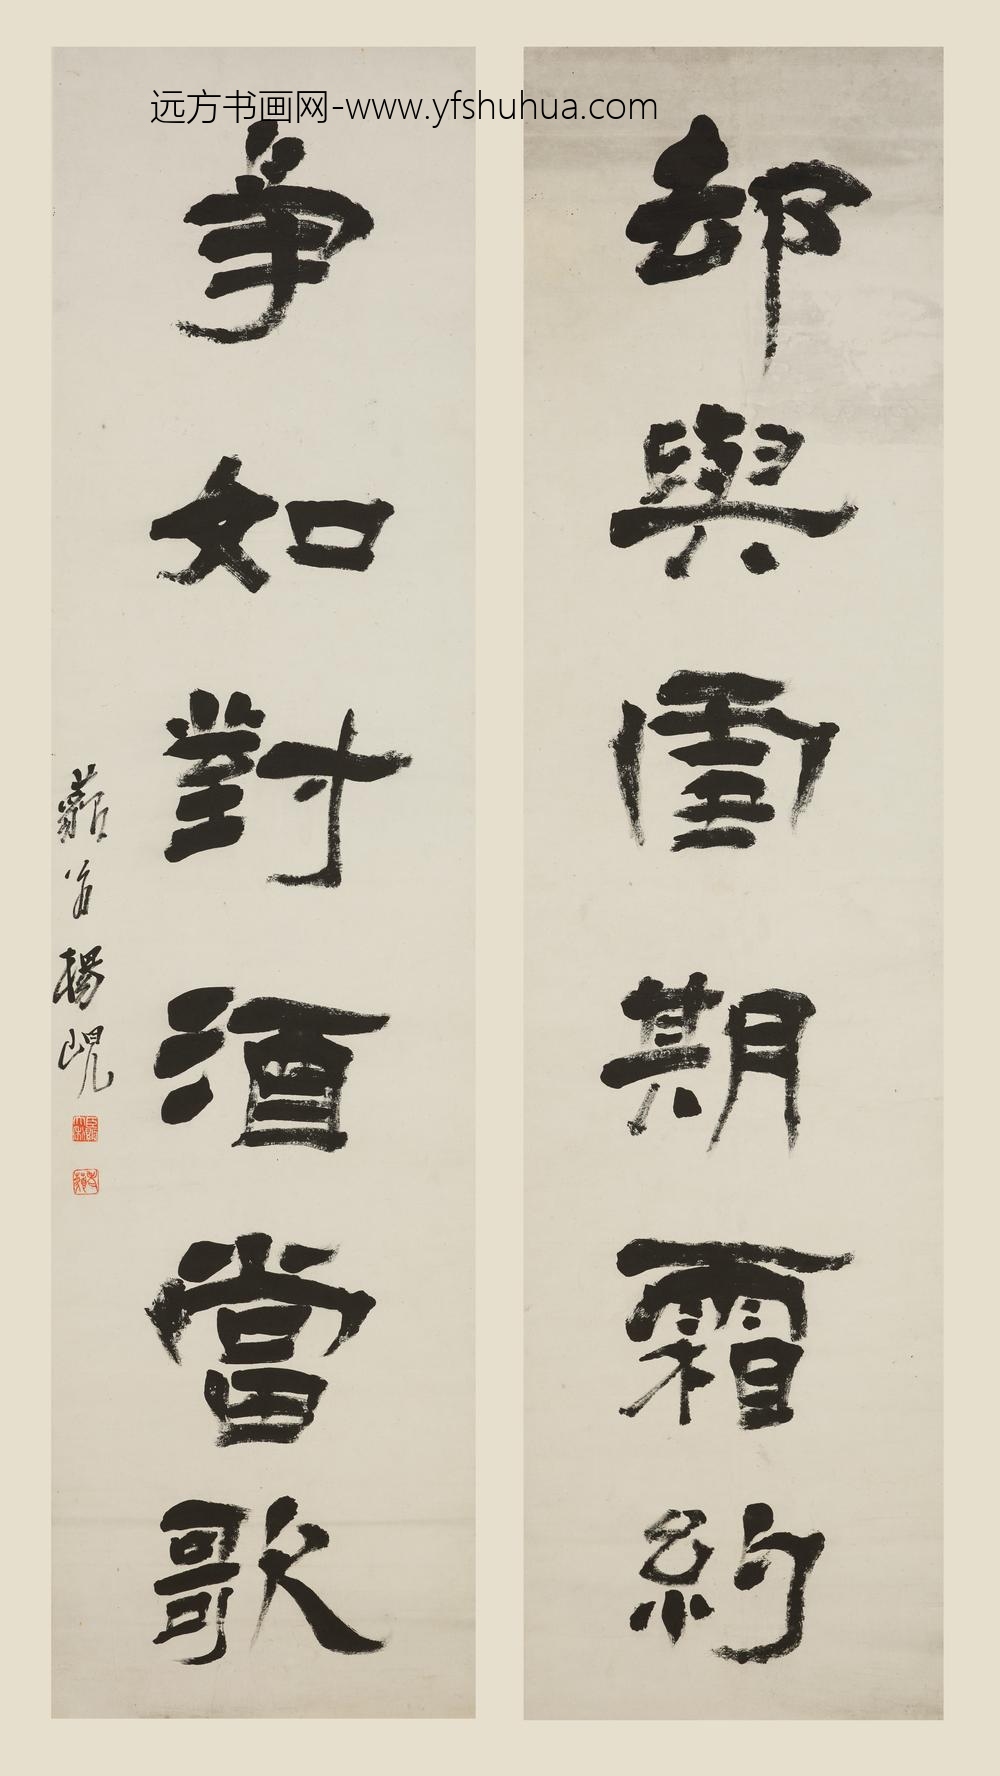 远方书画网-www.yfshuhua.com
却與雪期霜約
爭如對酒當歌
藐翁楊峴